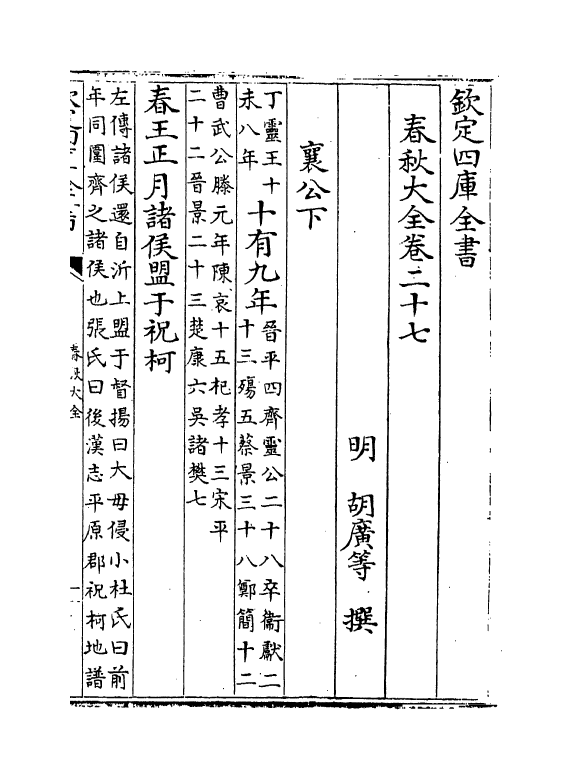 欽定四庫全書
春秋大全卷二十七
明 胡廣等 撰
襄公下
丁靈王十
未八年
十有九年
晉平四齊靈公二十八卒衞獻二
十三殤五蔡景三十八鄭簡十二
曹武公滕元年陳哀十五杞孝十三宋平
二十二晉景二十三楚康六吳諸樊七
春王正月諸侯盟于祝柯
左傳諸侯還自沂上盟于督揚曰大毋侵小杜氏曰前
年同圍齊之諸侯也張氏曰後漢志平原郡祝柯地譜
春秋大全
一